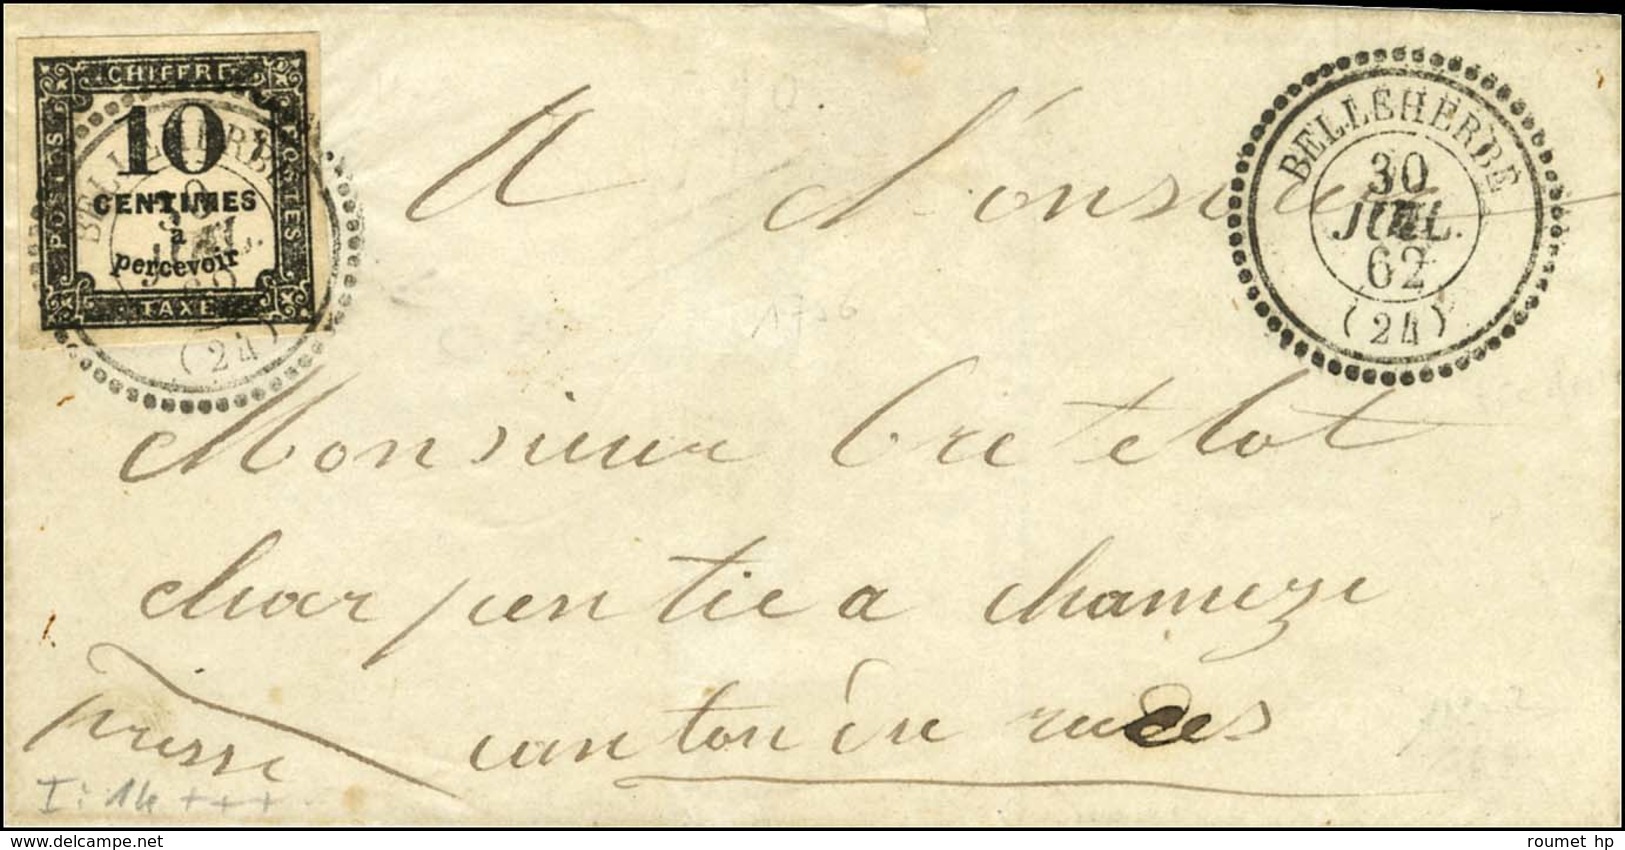 CHIFFRE
POSTES
10
CENTIMES
à
percevoir
TAXE
BELLEHERBE
30
JUIL.
62
(24)
BELLEHERBE
30
JUIL.
62
(24)
A Monsieur
1736
Monsieur Cretelot
charpentie a chameze
presse canton de
I : 14 +++
roumet hp